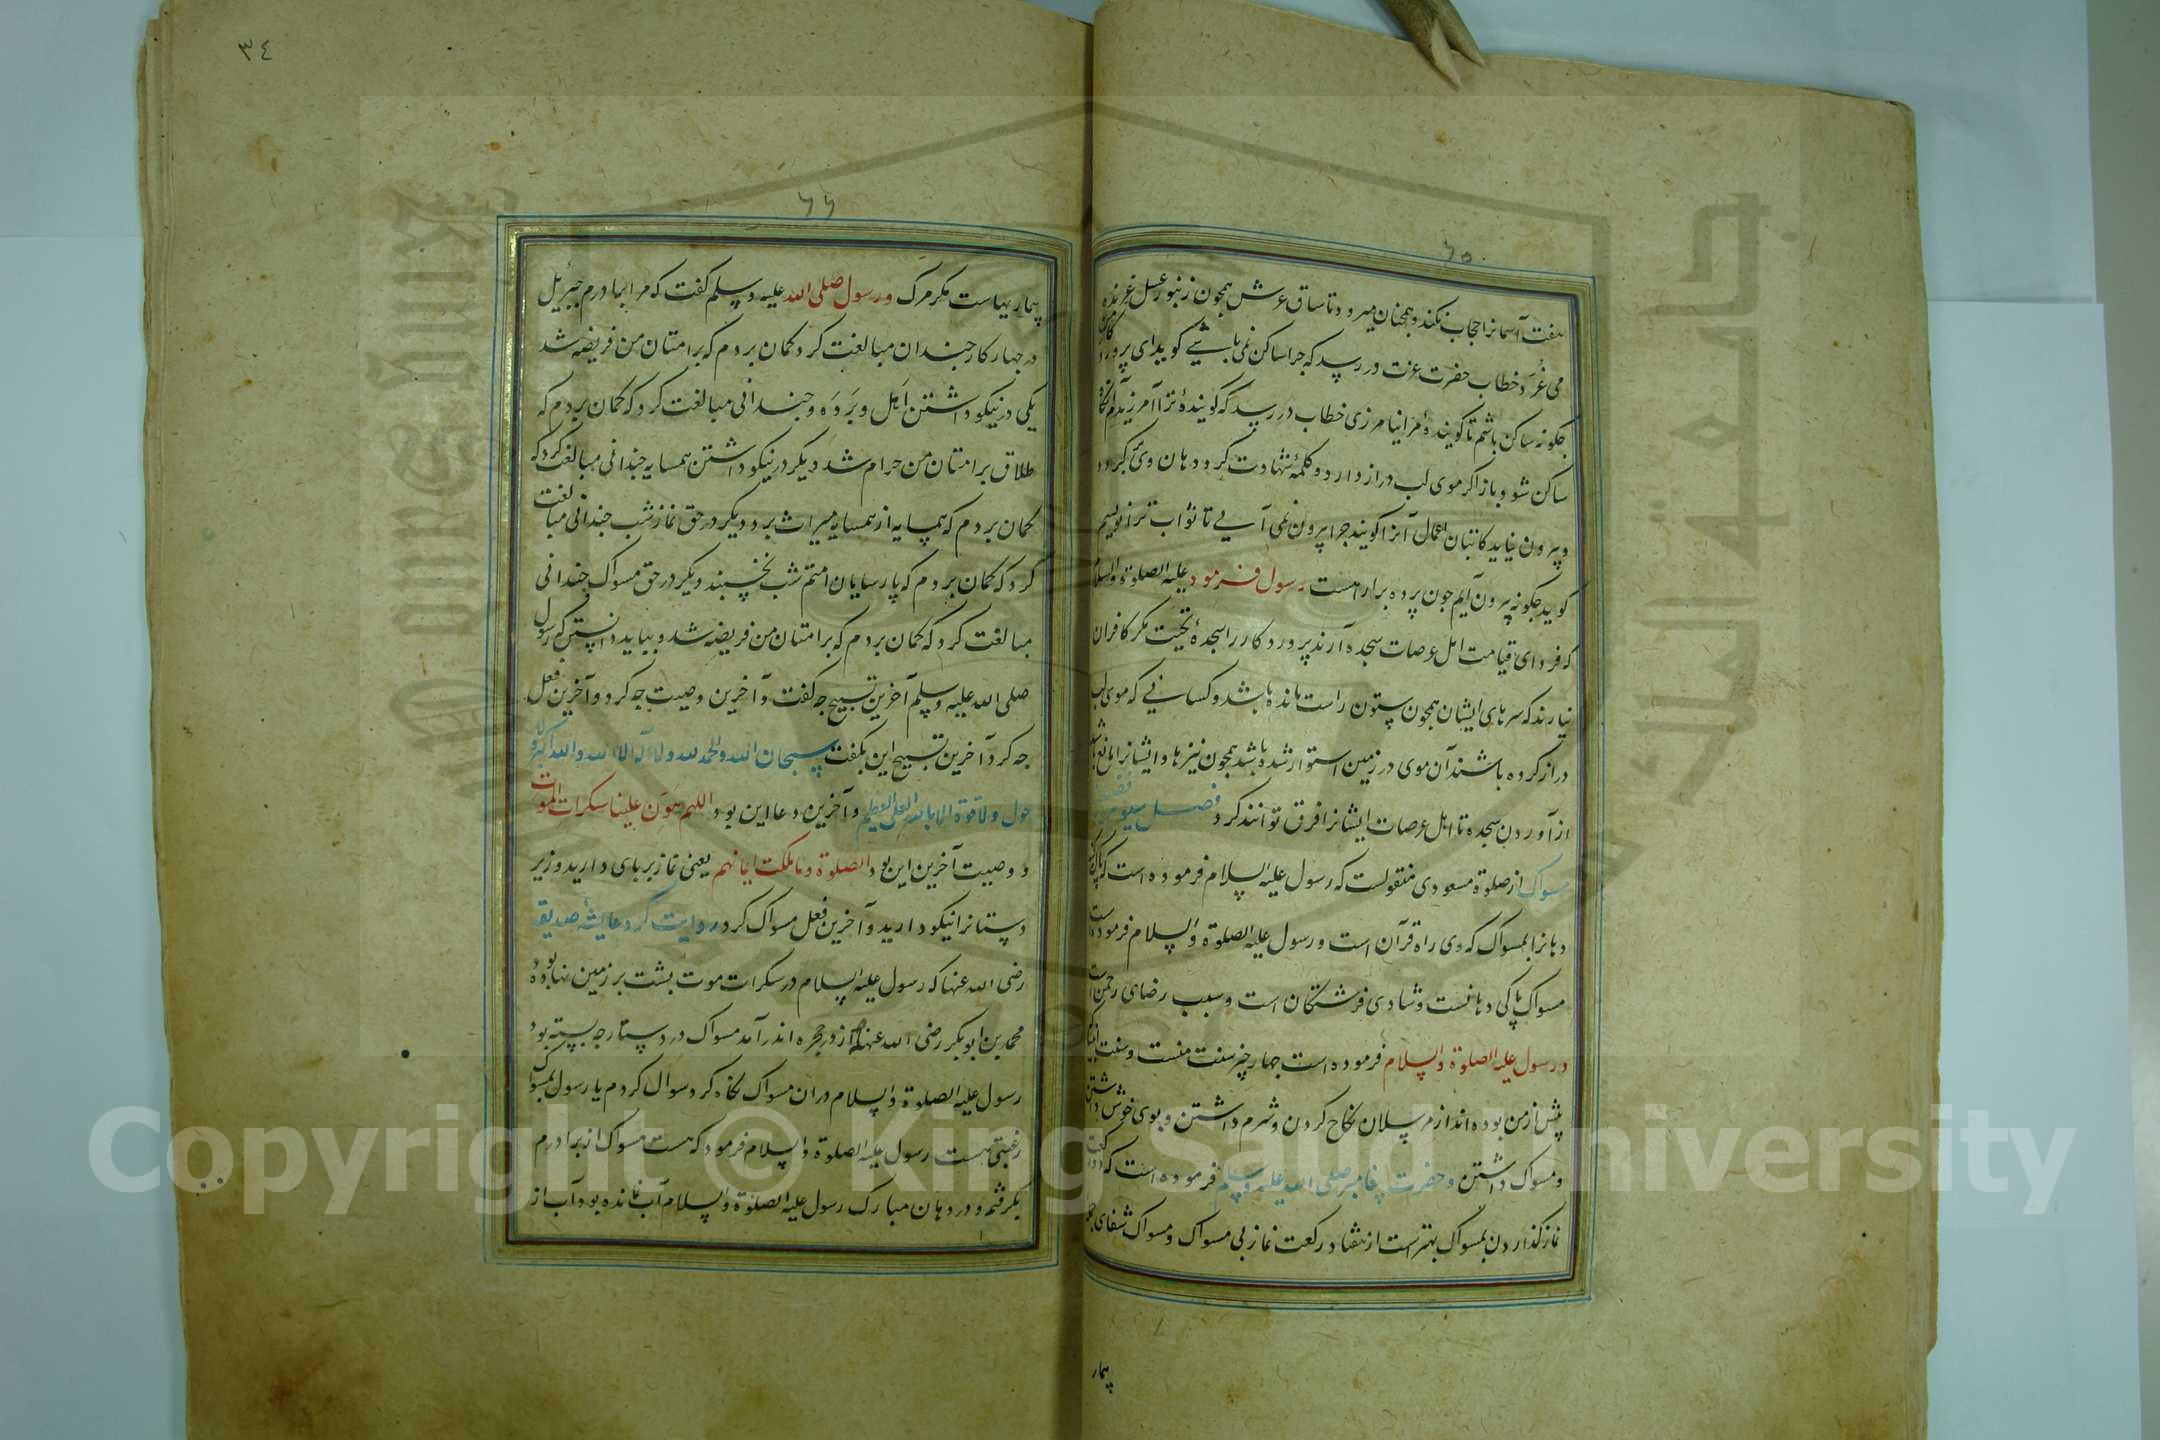 ٦٥
هفت آسمانرا حجاب نکند و همچنان میرود تا ساق عرش همچون زنبور عسل غرنده
می غرد خطاب حضرت عزت در رسد که چرا ساکن نمی باشی گوید ای پروردکار من
چکونه ساکن باشم تا کویندهٔ مرا نیامرزی خطاب در رسد که کویندهٔ ترا آمرزیدم آنکاه
ساکن شود و باز اکر موی لب دراز دارد و کلمهٔ شهادت کرد دهان وی کردد
و بیرون نیاید کاتبان اعمال آنرا کویند چرا بیرون نمی آیی تا ثواب ترا نویسیم
کوید چکونه بیرون آیم چون پرده برابر است رسول فرمود علیه الصلوة والسلام
که فردای قیامت اهل عرصات سجده آرند پروردکار را سجدهٔ تحیت مکر کافران
نیارند که سرهای ایشان همچون ستون راست مانده باشد و کسانی که موی لب
دراز کرده باشند آن موی در زمین استوار شده باشد همچون نیزها و ایشانرا مانع باشد
از آوردن سجده تا اهل عرصات ایشانرا فرق توانند کرد فصل سیوم فضیلت
مسواک از صلوة مسعودی منقولست که رسول علیه السلام فرموده است که پاک کنید
دهانرا بمسواک که وی راه قرآن است و رسول علیه الصلوة والسلام فرموده است
مسواک پاکی دهانست و شادی فرشتکان است و سبب رضای رحمن است
و رسول علیه الصلوة والسلام فرموده است چهار چیز سنت منست و سنت انبیا
پیش از من بوده اند از مرسلان نکاح کردن و شرم داشتن و بوی خوش داشتن
و مسواک داشتن و حضرت پیغامبر صلی الله علیه وسلم فرموده است که دو رکعت
نماز کذاردن بمسواک بهتر است از هفتاد رکعت نماز بی مسواک و مسواک شفای همه
بیمار
٣٤
٦٦
بیماریهاست مکر مرک و رسول صلی الله علیه وسلم کفت که مرا برادرم جبرئیل
در چهار کار چندان مبالغت کرد کمان بردم که بر امتان من فریضه شد
یکی در نیکو داشتن اهل و برده و چندانی مبالغت کرد که کمان بردم که
طلاق بر امتان من حرام شد دیکر در نیکو داشتن همسایه چندانی مبالغت کرد که
کمان بردم که همسایه از همسایه میراث برد دیکر در حق نماز شب چندانی مبالغت
کرد که کمان بردم که پارسایان امتم شب نخسبند دیکر در حق مسواک چندانی
مبالغت کرد که کمان بردم که بر امتان من فریضه شد و بباید دانستن که رسول
صلی الله علیه وسلم آخرین تسبیح چه کفت و آخرین وصیت چه کرد و آخرین فعل
چه کرد آخرین تسبیح این بکفت سبحان الله والحمد لله ولا اله الا الله والله اکبر ولا
حول ولا قوة الا بالله العلی العظیم و آخرین دعا این بود اللهم هون علینا سکرات الموت
و وصیت آخرین این بود الصلوة وما ملکت ایمانهم یعنی نماز بر پای دارید و زیر
دستانرا نیکو دارید و آخرین فعل مسواک کرد روایت کرد عایشهٔ صدیقه
رضی الله عنها که رسول علیه السلام در سکرات موت پشت بر زمین نهاده بود
محمد بن ابو بکر رضی الله عنهما از در حجره اندر آمد مسواک در دستارچه بسته بود
رسول علیه الصلوة والسلام در ان مسواک نکاه کرد سوال کردم یا رسول بمسواک
رغبتی هست رسول علیه الصلوة والسلام فرمود که هست مسواک از برادرم
بکرفتم و در دهان مبارک رسول علیه الصلوة والسلام آب نمانده بود آب از
Copyright © King Saud University